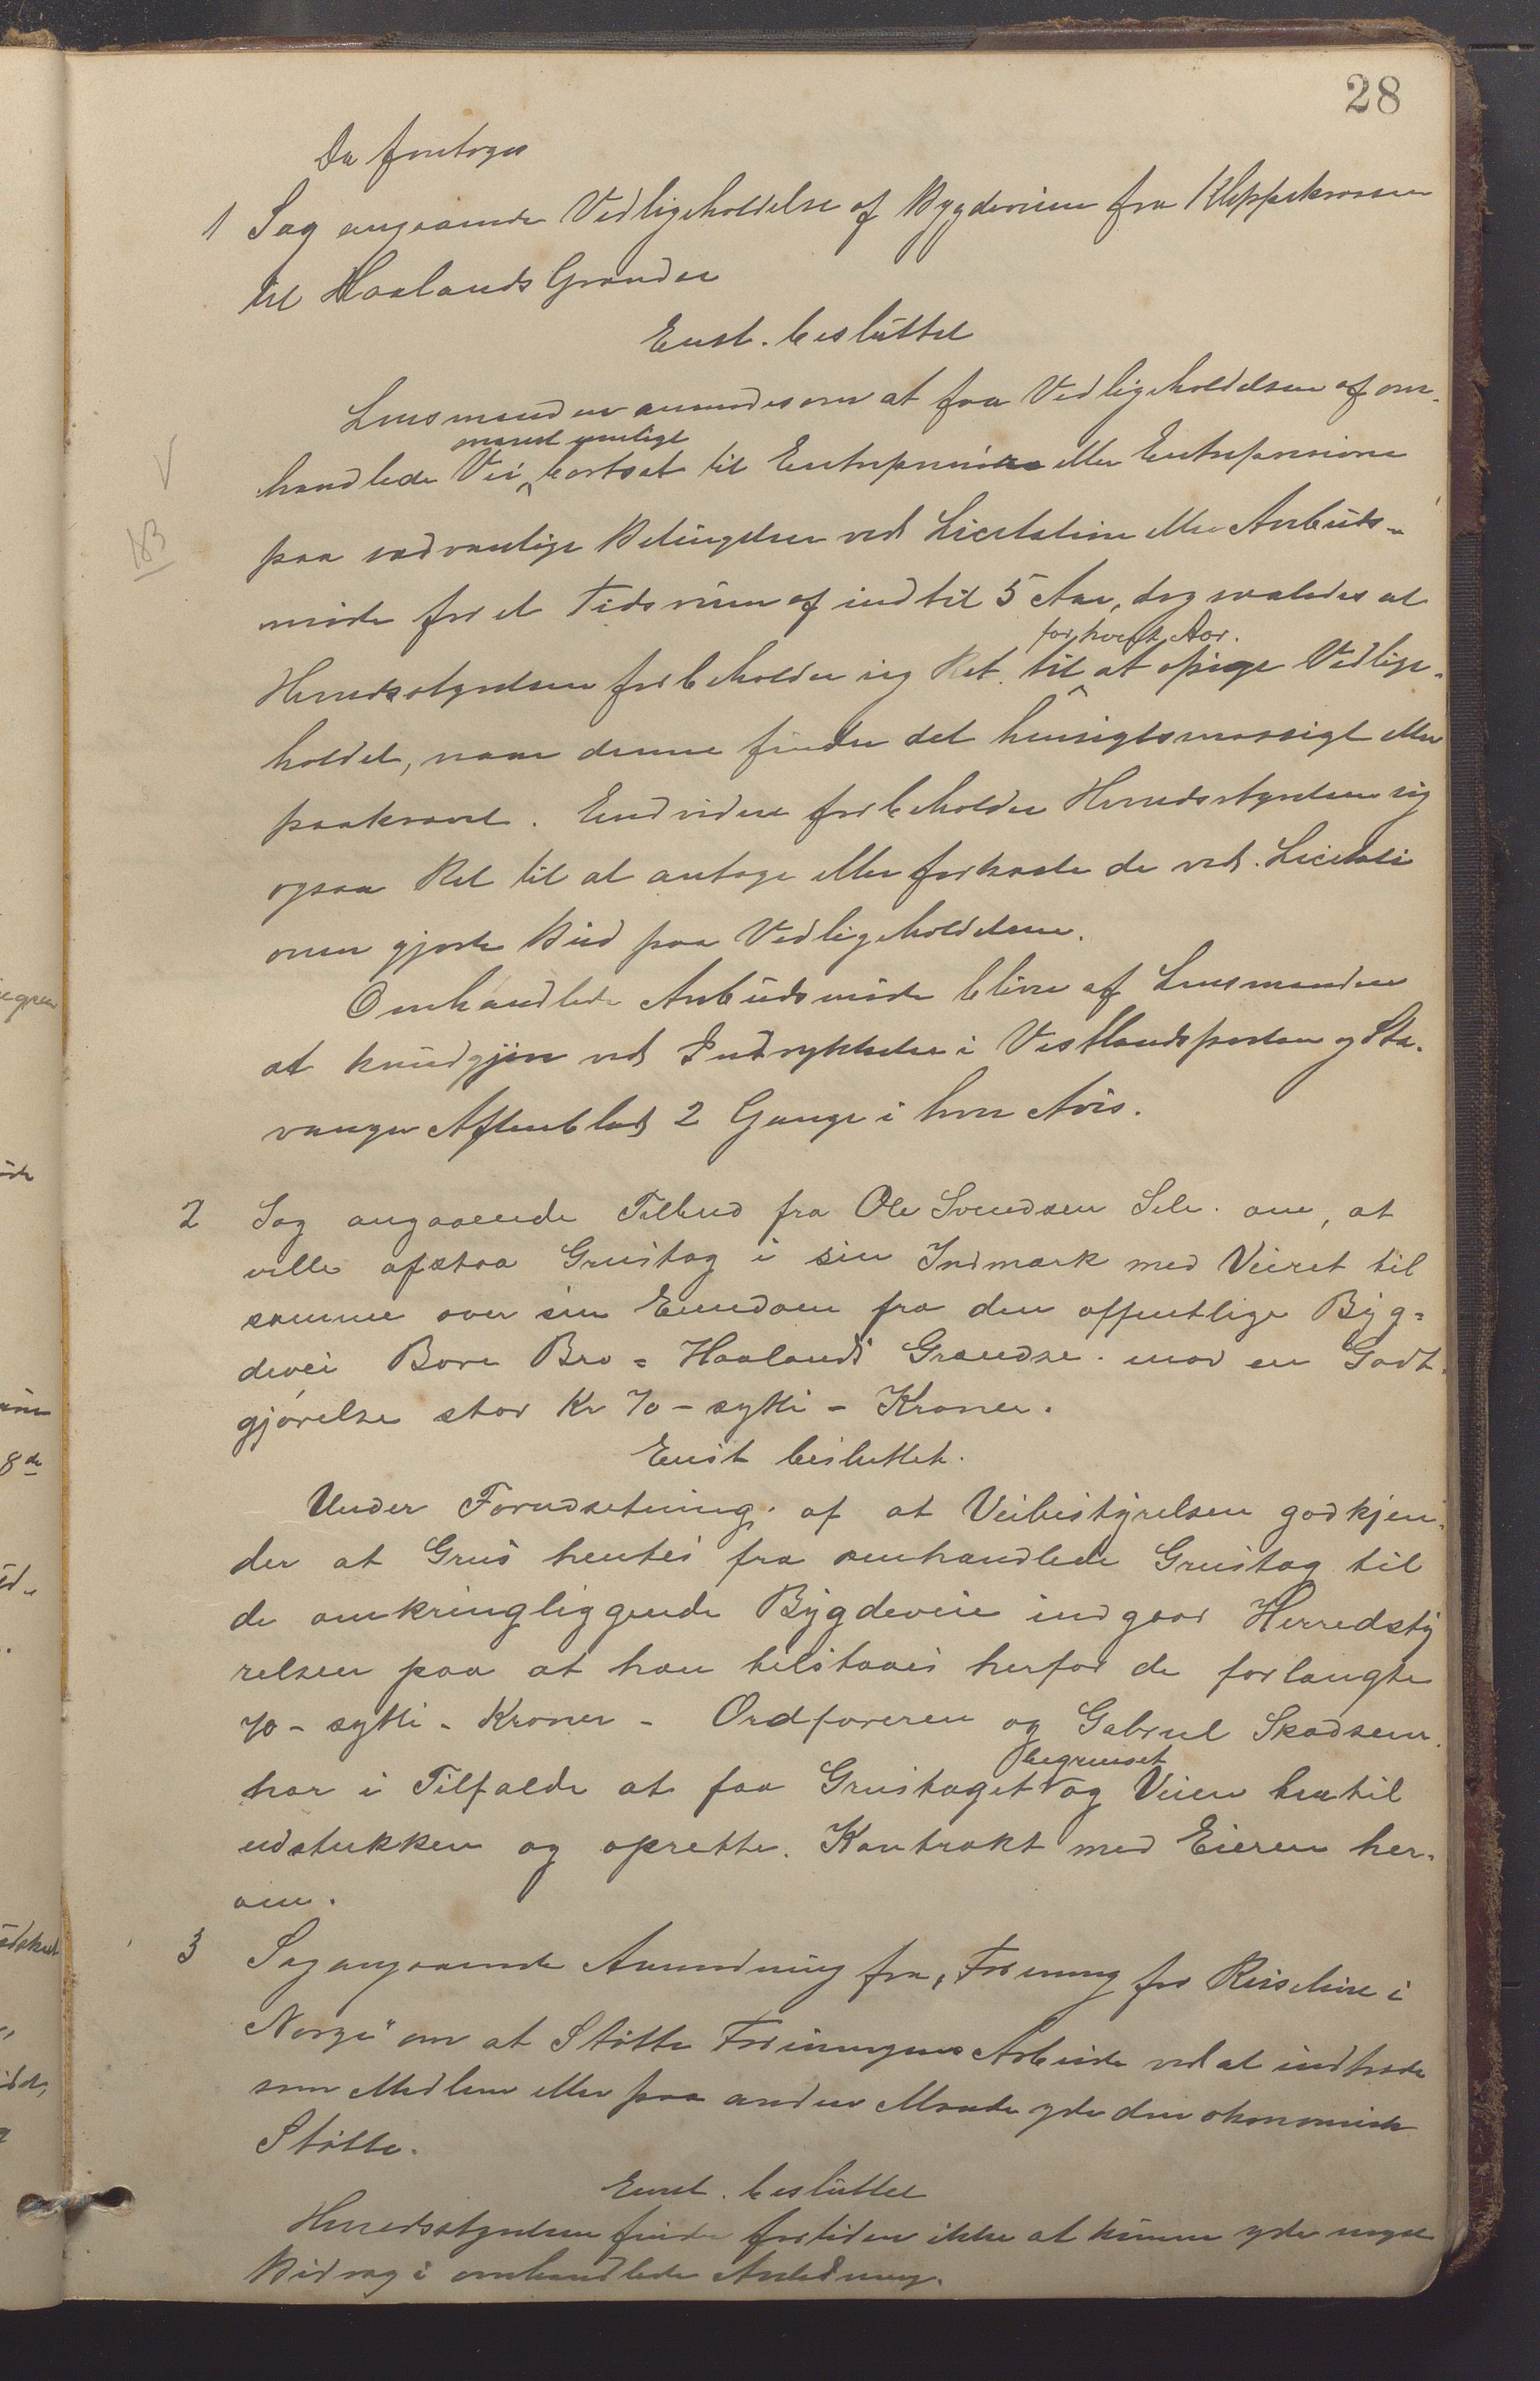 28
Da foretoges
1 Sag angaaende Vedligeholdelse af Bygdeveien fra Kleppekrossen
til Haalands Grændse
Enst. besluttet
Lensmanden anmodes om at faa Vedligeholdelsen af om-
snarest muligt
handlede Vei bortsat til Entreprenør eller Entreprenører
paa sedvanlige Betingelser ved Licitation eller Anbuds-
møde for et Tidsrum af indtil 5 Aar, dog saaledes at
for hvert Aar.
Herredsstyrelsen forbeholder sig Ret til at opsige Vedlige-
holdet, naar denne finder det hensigtsmæssigt eller
paakrævet. Endvidere forbeholder Herredsstyrelsen sig
ogsaa Ret til at antage eller forkaste de ved Licitati
onen gjorte Bud paa Vedligeholdelsen.
Omhandlede Anbudsmøde bliver af Lensmanden
at kundgjøre ved Indrykkelse i Vestlandsposten og Sta-
vanger Aftenblad 2 Gange i hver Avis.
2 Sag angaaende Tilbud fra Ole Svendsen Sele om, at
ville afstaa Grustag i sin Indmark med Veiret til
samme over sin Eiendom fra den offentlige Byg=
devei Bore Bro = Haalands Grændse mod en Godt-
gjørelse stor Kr 70 - sytti - Kroner.
Enst besluttet.
Under Forudsetning af at Veibestyrelsen godkjen-
der at Grus hentes fra omhandlede Grustag til
de omkringliggende Bygdeveie indgaar Herredsty
relsen paa at han tilstaaes herfor de forlangte
70 - sytti - Kroner - Ordføreren og Gabriel Skadsem
begrenset
har i Tilfælde at faa Grustaget og Veien hertil
udstukken og oprette Kontrakt med Eieren her-
om.
3 Sag angaaende Anmodning fra „Forening for Reiseliv i
Norge" om at Støtte Foreningens Arbeide ved at indtræde
som Medlem eller paa anden Maade yde den økonomisk
Støtte.
Enst. besluttet
Herredsstyrelsen finder fortiden ikke at kunne yde noget
Bidrag i omhandlede Anledning.